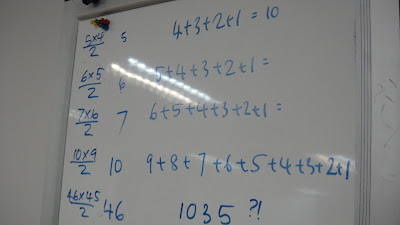 5×4/2 5 4+3+2+1 = 10
6×5/2 6 5+4+3+2+1=
7×6/2 7 6+5+4+3+2+1=
10×9/2 10 9+8+7+6+5+4+3+2+1
46×45/2 46 1035 ?!